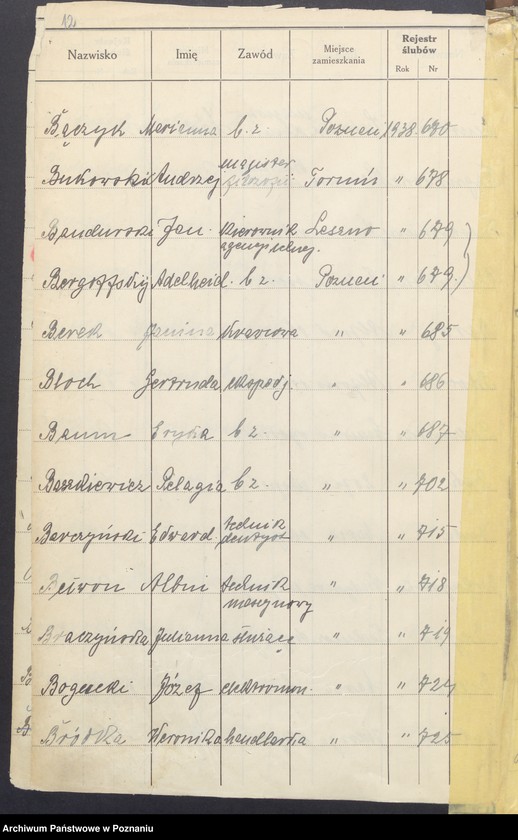 12.
Nazwisko Imię Zawód Miejsce zamieszkania Rejestr ślubów
Rok Nr
Bączyk Marianna b. z. Poznań 1938 680
Bukowski Andrzej magister filozofii Toruń " 678
Bandurski Jan kierownik Leszno " 679
Bergoffsky Adelheid b. z. Poznań " 679
Berek Janina krawcowa " " 685
Bloch Gertruda ekspedj. " " 686
Baum Eryka b z. " " 687
Baszkiewicz Pelagia b z. " " 702
Barczyński Edward technik dentyst " " 715
Albin technik maszynowy " " 718
Braczyńska Julianna służąca " " 719
Bogucki Józef elektromon. " " 724
Bródka Weronika handlarka " " 725
Archiwum Państwowe w Poznaniu